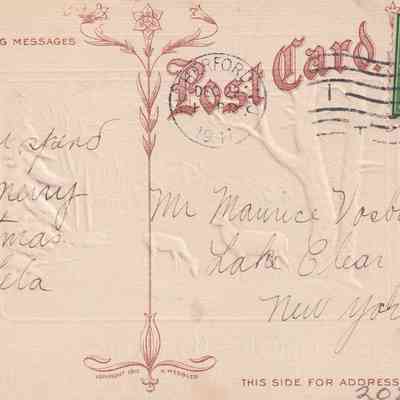 G MESSAGES
Post Card.
DE
1911
spend
merry
tmas
leta
Mr Maurice Vosb
Lake Clear
New York
COPYRIGHT 1911 H. WESSLER
THIS SIDE FOR ADDRESS